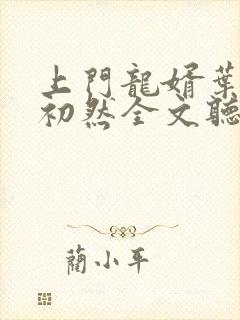 上門龍婿葉
初然全文聽
藺小平